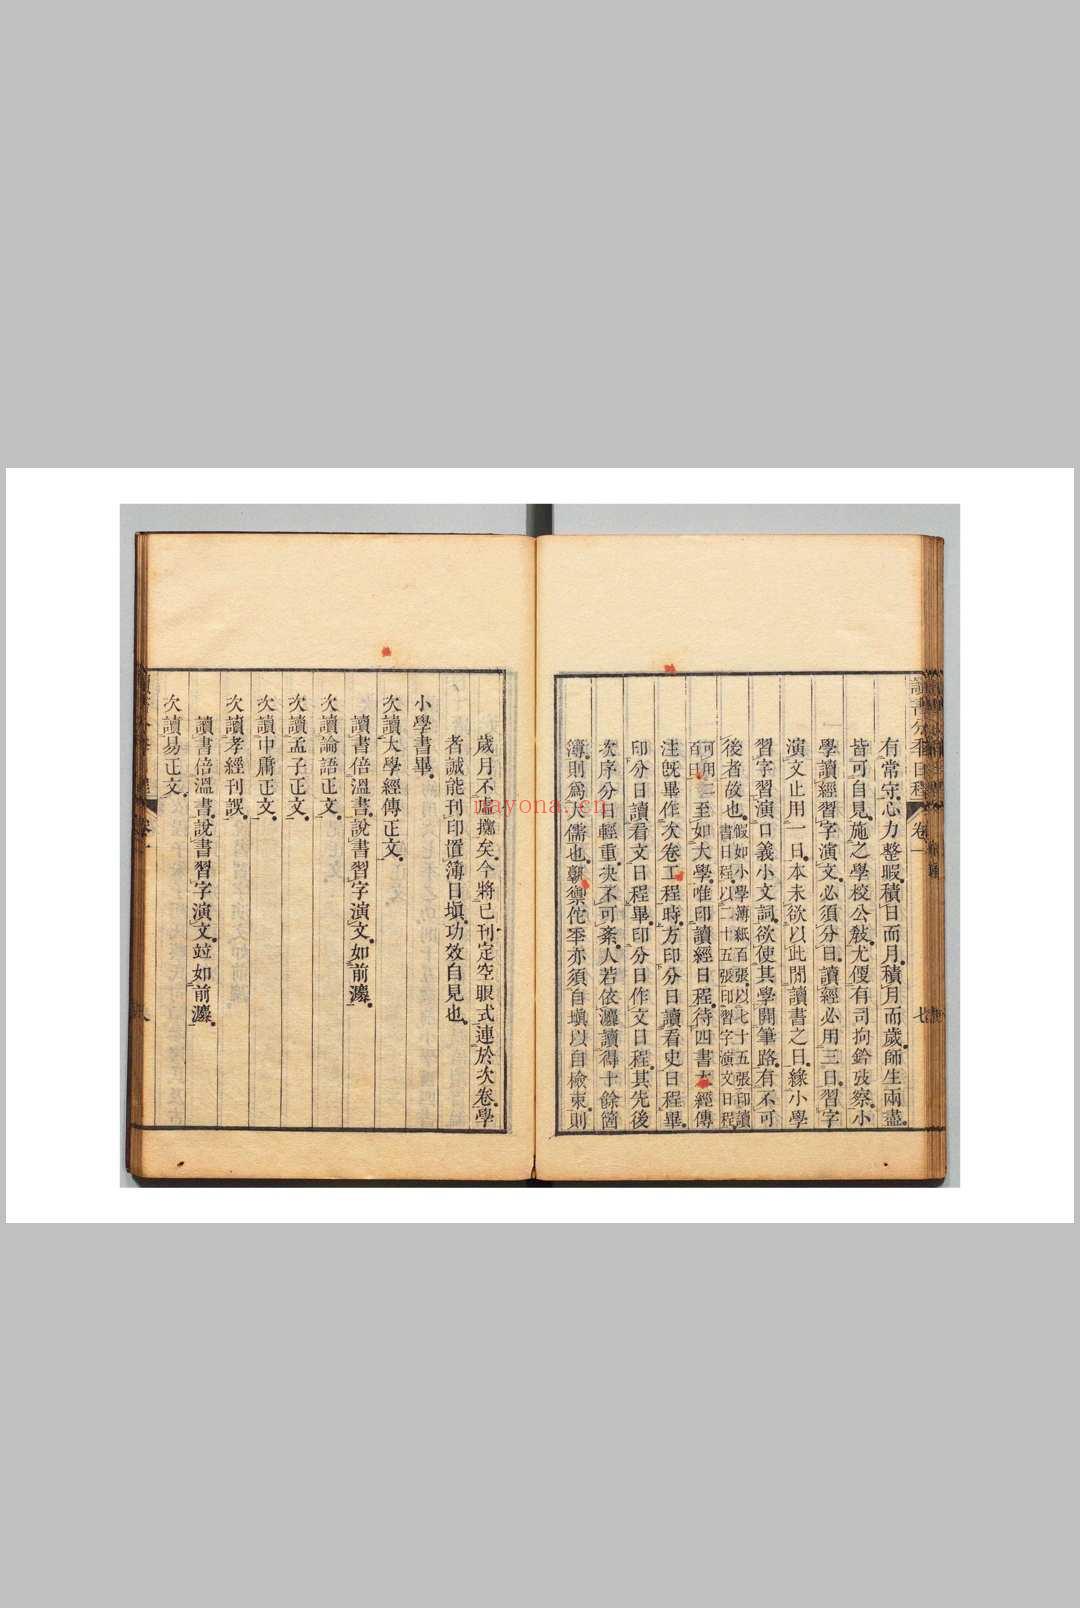 讀書分年日程 卷一 七
有常守心力整暇積日而月積月而歲師生兩盡
皆可自見施之學校公敎尤便有司拘鈐攷察小
學讀經習字演文必須分日讀經必用三日習字
演文止用一日本未欲以此閒讀書之日緣小學
習字習演口義小文詞欲使其學開筆路有不可
後者故也假如小學簿紙百張以七十五張印讀
書日程以二十五張印習字演文日程
可用二
百日至如大學惟印讀經日程待四書大經傳
注旣畢作次卷工程時方印分日讀看史日程畢
印分日讀看文日程畢印分日作文日程其先後
次序分日輕重決不可紊人若依灋讀得十餘箇
簿則爲大儒也孰禦佗秊亦須自塡以自檢束則
歲月不虛擲矣今將已刊定空眼式連於次卷學
者誠能刊印置簿日塡功效自見也
小學書畢
次讀大學經傳正文
讀書倍溫書說書習字演文如前灋
次讀論語正文
次讀孟子正文
次讀中庸正文
次讀孝經刊誤
讀書倍溫書說書習字演文竝如前灋
次讀易正文
卷一 八
nayona.cn